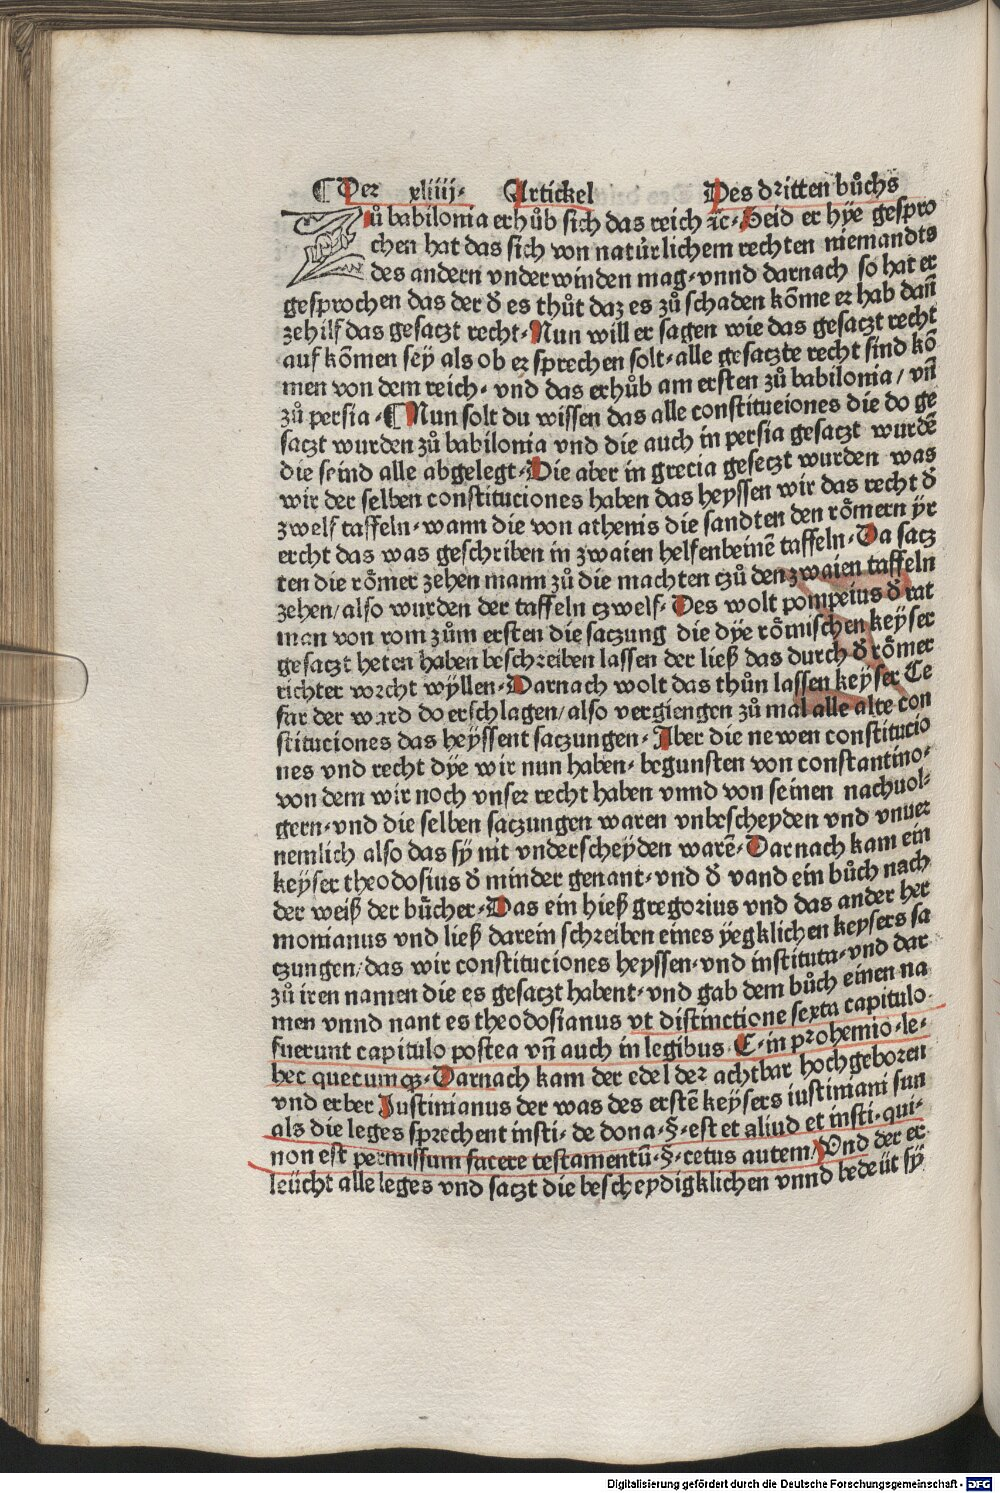 ¶ Der xliiij· Artickel Des dritten bůchs
Zů babilonia erhůb sich das reich ꝛc· Seid er hye gespro
chen hat das sich von natürlichem rechten niemandts
des andern vnderwinden mag· vnnd darnach so hat er
gesprochen das der d̄ es thůt daz es zů schaden kōme er hab dañ
ze hilf das gesaczt recht· Nun will er sagen wie das gesaczt recht
auf kōmen sey als ob er sprechen solt· alle gesaczte recht sind kō
men von dem reich· vnd das erhůb am ersten zů babilonia / vñ
zů persia· ¶ Nun solt du wissen das alle constitueiones die do ge
saczt wurden zů babilonia vnd die auch in persia gesaczt wurdē
die seind alle abgelegt· Die aber in grecia geseczt wurden was
wir der selben constituciones haben das heyssen wir das recht d̄
zwelf taffeln· wann die von athenis die sandten den rőmern ÿr
ercht das was geschriben in zwaien helfenbeinē taffeln· Da sacz
ten die rőmer zehen mann zů die machten czů den zwaien taffeln
zehen / also wurden der taffeln czwelf· Des wolt pompeius d̄ rat
man von rom zům ersten die saczung die dÿe rőmischen keyser
gesaczt heten haben beschreiben lassen der ließ das durch d̄ rőmer
richter vorcht wÿllen· Darnach wolt das thůn lassen keyser Ce
sar der ward do erschlagen / also vergiengen zů mal alle alte con
stituciones das heyssent saczungen· Aber die newen constitucio
nes vnd recht dÿe wir nun haben· begunsten von constantino·
von dem wir noch vnser recht haben vnnd von seinen nachuol·
gern· vnd die selben saczungen waren vnbescheyden vnd vnuer
nemlich also das sÿ nit vnderscheyden warē· Darnach kam ein
keyser theodosius d̄ minder genant· vnd d̄ vand ein bůch nach
der weiß der bücher· Das ein hieß gregorius vnd das ander her
monianus vnd ließ darein schreiben eines ÿegklichen keysers sa
czungen / das wir constituciones heyssen· vnd instituta· vnd dar
zů iren namen die es gesaczt habent· vnd gab dem bůch einen na
men vnnd nant es theodosianus vt distinctione sexta capitulo
fuerunt capitulo postea vñ auch in legibus C· in prohemio· le·
hec quecumqꝫ· Darnach kam der edel der achtbar hochgeboren
vnd erber Justinianus der was des erstē keysers iustiniani sun
als die leges sprechent insti· de dona· §· est et aliud et insti· qui·
non est permissum facere testamentū· §· cetus autem / Vnd der er
leücht alle leges vnd saczt die bescheydigklichen vnnd bedeüt sÿ
Digitalisierung gefördert durch die Deutsche Forschungsgemeinschaft - DFG